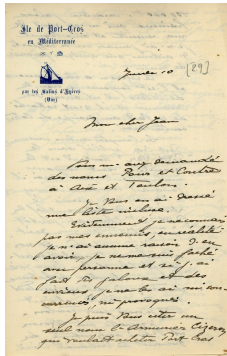 Ile de Port-Cros
en Méditerranée
par les Salins d'Hyères
(Var)
[29]
Mon cher Jean
Vous m'avez demandé
des noms Pour et Contre
à Aix et Toulon.
Je vous en ai dressé
une liste incluse.
Evidemment je ne connais
pas mes ennemis, en réalité
je n'ai aucune raison d'en
avoir, je ne me suis fâché
avec personne et si j'ai
fait des jaloux et des
envieux, je ne les ai ni
ni provoqués.
Je puis vous citer un
seul nom l'Armurier
qui voulait acheter Port Cros